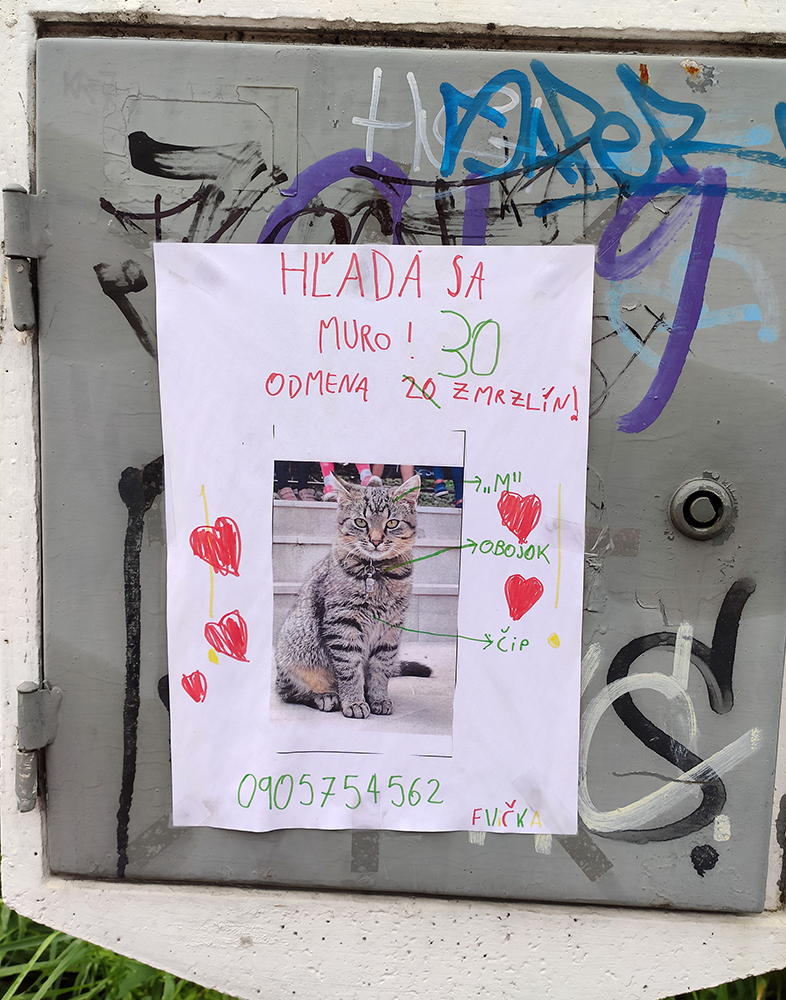 HĽADÁ SA
MURO! 30
ODMENA 20 ZMRZLÍN!
„M"
OBOJOK
ČIP
0905754562
EVIČKA